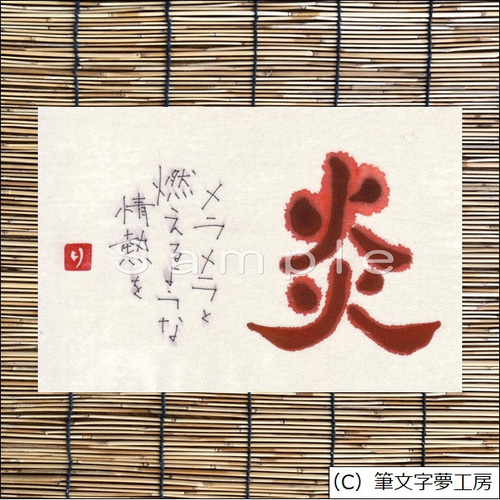 炎
メラメラと
燃えるような
情熱を
り
Sample
(C) 筆文字夢工房